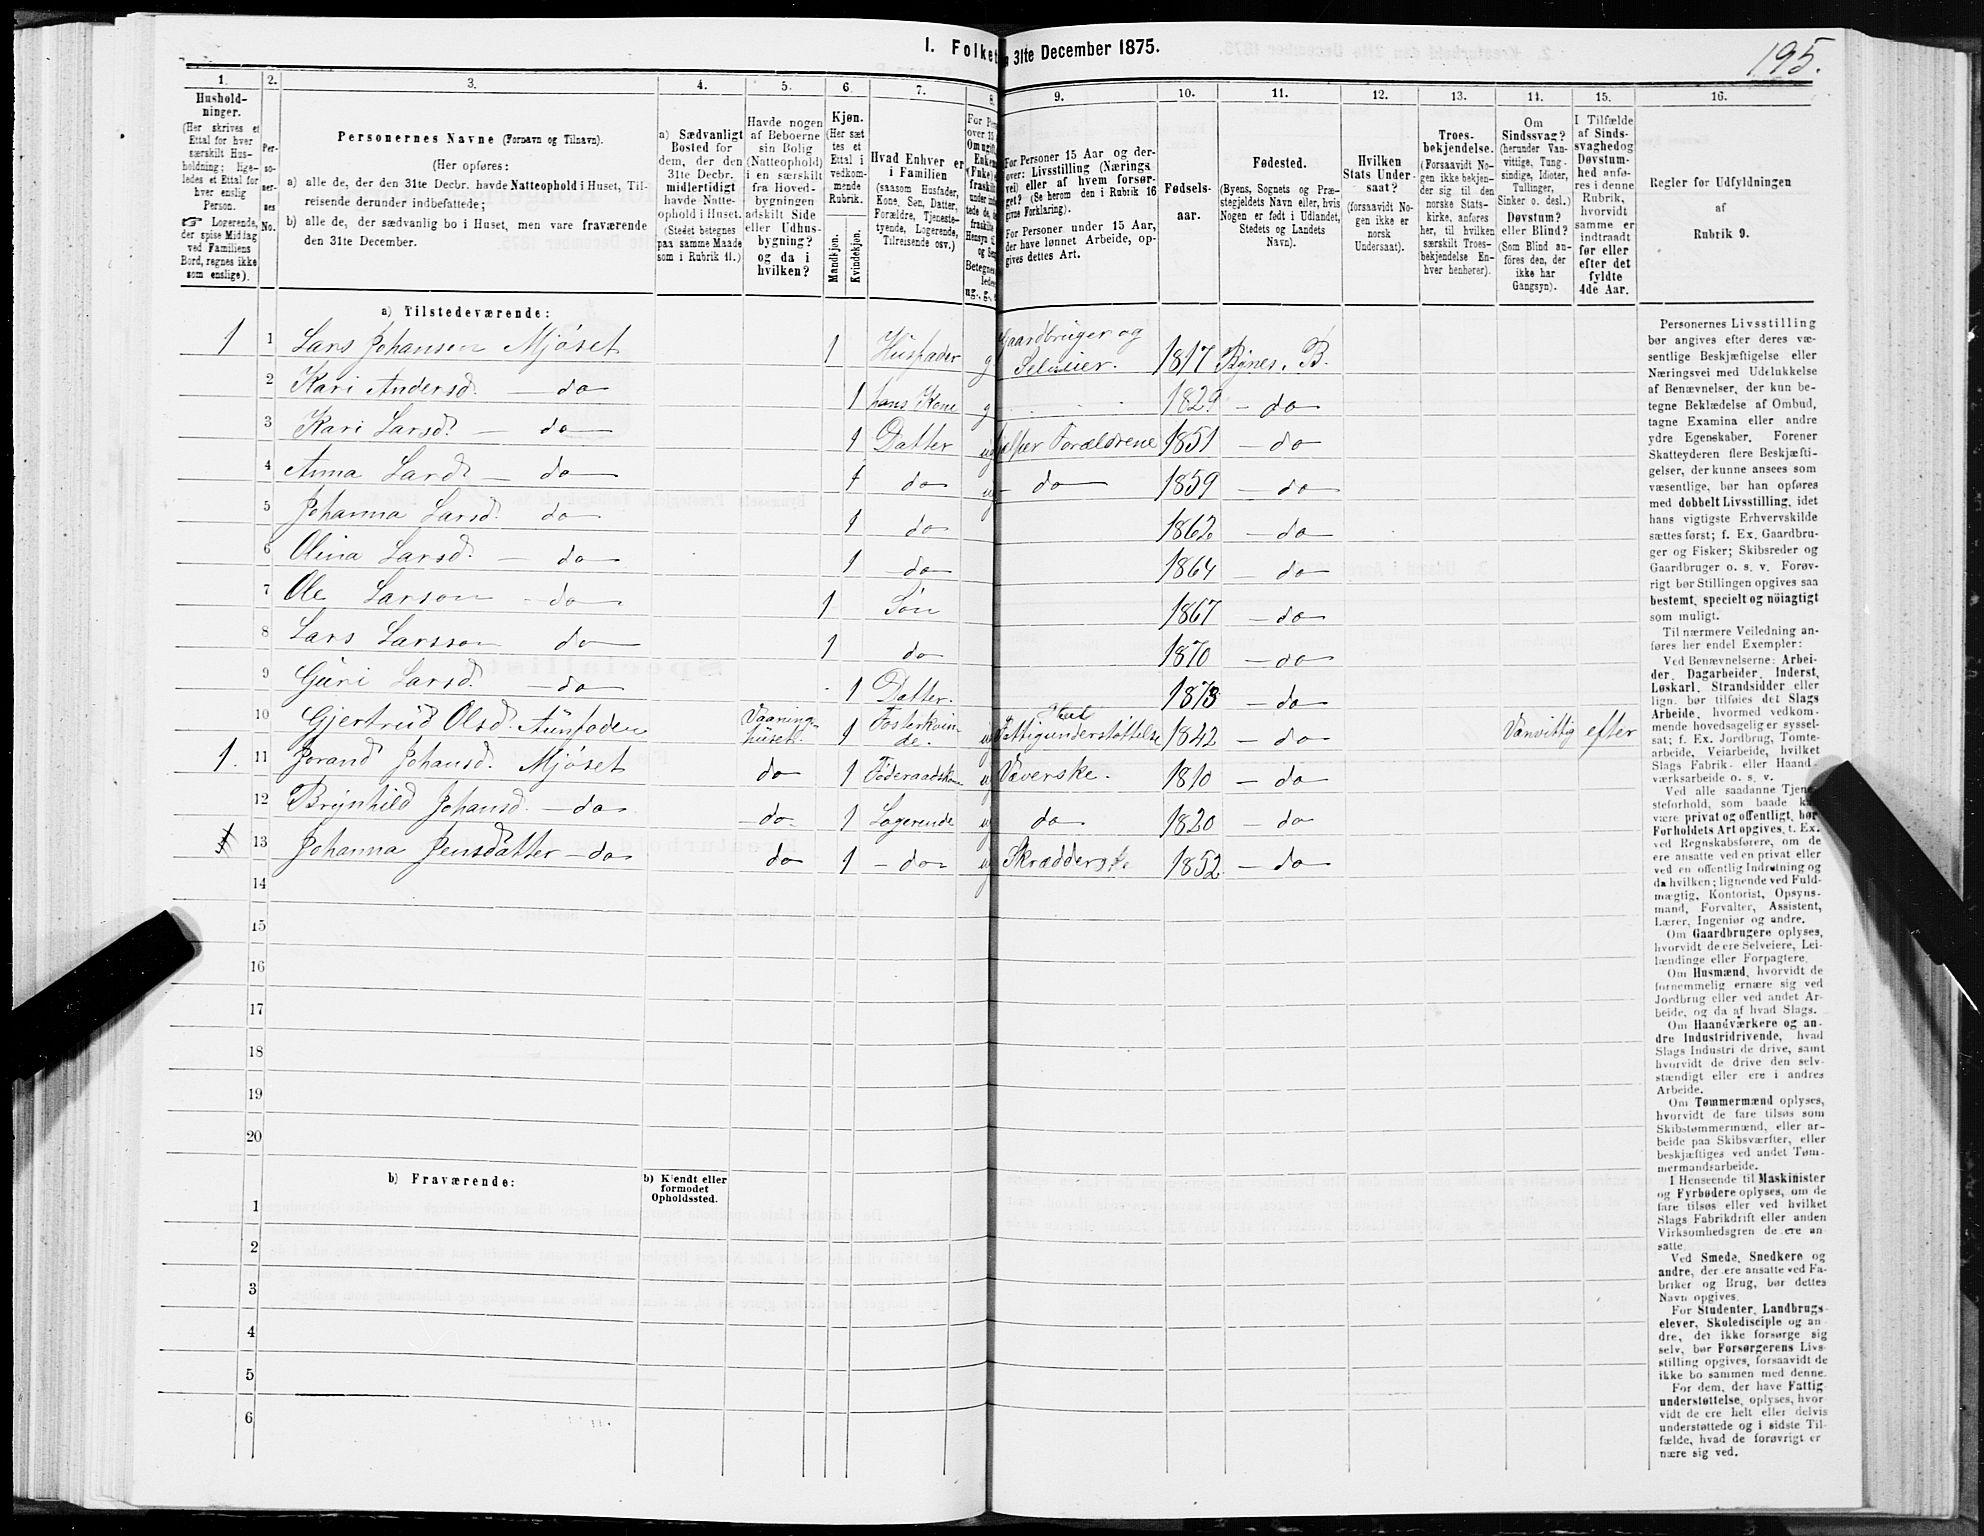 195.
I. Folket
31te December 1875.
1. 2. 3. 4. 5. 6. 7. 8. 9. 10. 11. 12. 13. 14. 15. 16.
Husholdninger.
(Her skrives et
Ettal for hver
særskilt Hus-
holdning; lige-
ledes et Ettal for
hver enslig
Person.
☞ Logerende,
der spise Middag
ved Familiens
Bord, regnes ikke
som enslige).
Per-
so-
ner-
nes
No.
Personernes Navne (Fornavn og Tilnavn).
(Her opføres:
a) alle de, der den 31te Decbr. havde Natteophold i Huset, Til-
reisende derunder indbefattede;
b) alle de, der sædvanlig bo i Huset, men vare fraværende
den 31te December.
a) Sædvanligt
Bosted for
dem, der den
31te Decbr.
midlertidigt
havde Natte-
ophold i Huset.
(Stedet betegnes
paa samme Maade
som i Rubrik 11.)
Havde nogen
af Beboerne
sin Bolig
(Natteophold)
i en særskilt
fra Hoved-
bygningen
adskilt Side
eller Udhus-
bygning?
og da i
hvilken?
Kjøn.
(Her sæt-
tes et
Ettal i
vedkom-
mende
Rubrik.
Mandkjøn.
Kvindekjøn.
Hvad Enhver er
i Familien
(saasom Husfader,
Kone, Søn, Datter,
Forældre, Tjeneste-
tyende, Logerende,
Tilreisende osv.)
For Personer 15 Aar og der-
over: Livsstilling (Nærings
vei) eller af hvem forsør-
get? (Se herom den i Rubrik 16
givne Forklaring).
For Personer under 15 Aar,
der have lønnet Arbeide, op-
gives dettes Art.
Fødsels-
aar.
Fødested.
(Byens, Sognets og Præ-
stegjeldets Navn eller, hvis
Nogen er født i Udlandet,
Stedets og Landets
Navn).
Hvilken
Stats Under-
saat?
(forsaavidt No-
gen ikke er
norsk
Undersaat).
Troes-
bekjendelse.
(Forsaavidt No-
gen ikke bekjen-
der sig til den
norske Stats-
kirke, anføres
her, til hvilken
særskilt Troes-
bekjendelse En-
hver henhører).
Om
Sindssvag?
(herunder Van-
vittige, Tung-
sindige, Idioter,
Tullinger,
Sinker o. desl.)
Døvstum?
eller Blind?
(Som Blind an-
føres den, der
ikke har
Gangsyn).
I Tilfælde
af Sinds-
svaghed og
Døvstum-
hed anfø-
res i denne
Rubrik,
hvorvidt
samme er
indtraadt
før eller
efter det
fyldte
4de Aar.
Regler for Udfyldningen
af
Rubrik 9.
a) Tilstedeværende:
1 1 Lars Johansen Mjøset 1 Husfader g Gaardbruger og Selveier. 1817 Bynes. B.
2 Kari Andersd. — do 1 hans Kone g 1829 — do
3 Kari Larsd. — do 1 Datter ug hjelper Forældrene 1851 — do
4 Anna Larsd — do 1 do ug — do 1859 — do
5 Johanna Larsd. do 1 do 1862 — do
6 Olina Larsd. — do 1 do 1864 — do
7 Ole Larson — do 1 Søn 1867 — do
8 Lars Larsson do 1 do 1870 — do
9 Guri Larsd. — do 1 Datter. 1873 — do
10 Gjertrud Olsd. Vaaning-huset. 1 Fosterkvinde. ug Fattigunderstøttelse 1842 — do Vanvittig efter
1. 11 Jorand Johansd. Mjøset do 1 Føderaadskone ug Væverske. 1810 — do
12 Brynhild Johansd. — do do 1 Logerende ug do 1820 — do
13 Johanna Jensdatter — do do 1 — do ug Skrædderske 1852 — do
14
15
16
17
18
19
20
b) Fraværende:
b) Kjendt eller
formodet
Opholdssted.
1
2
3
4
5
6
Personernes Livsstilling
bør angives efter deres væ-
sentlige Beskjæftigelse eller
Næringsvei med Udelukkelse
af Benævnelser, der kun be-
tegne Beklædelse af Ombud,
tagne Examina eller andre
ydre Egenskaber. Forener
Skatteyderen flere Beskjæfti-
gelser, der kunne ansees som
væsentlige, bør han opføres
med dobbelt Livsstilling, idet
hans vigtigste Erhvervskilde
sættes først; f. Ex. Gaardbru-
ger og Fisker; Skibsreder og
Gaardbruger o. s. v. Forøv-
rigt bør Stillingen opgives saa
bestemt, specielt og nöiagtigt
som muligt.
Til nærmere Veiledning an-
føres her endel Exempler:
Ved Benævnelserne: Arbei-
der, Dagarbeider, Inderst,
Løskarl, Strandsidder eller
lign. bør tilføies det Slags
Arbeide, hvormed vedkom-
mende hovedsagelig er syssel-
sat; f. Ex. Jordbrug, Tomte-
arbeide, Veiarbeide, hvilket
Slags Fabrik- eller Haand-
værksarbeide o. s. v.
Ved alle saadanne Tjene-
steforhold, som baade kan
være privat og offentligt, bør
Forholdets Art opgives, t. Ex.
ved Regnskabsførere, om de
ere ansatte ved en privat eller
ved en offentlig Indretning og
da hvilken; lignende ved Fuld-
mægtig, Kontorist, Opsyns-
mand, Forvalter, Assistent,
Lærer, Ingeniør og andre.
Om Gaardbrugere oplyses,
hvorvidt de ere Selveiere, Lei-
lændinge eller Forpagtere.
Om Husmænd, hvorvidt de
fornemmelig ernære sig ved
Jordbrug eller ved andet Ar-
beide, og da af hvad Slags.
Om Haandværkere og an-
dre Industridrivende, hvad
Slags Industri de drive, samt
hvorvidt de drive den selv-
stændigt eller ere i andres
Arbeide.
Om Tømmermænd oplyses,
hvorvidt de fare tilsøs som
Skibstømmermænd, eller ar-
beide paa Skibsværfter, eller
beskjæftiges ved andet Tøm-
mermandsarbeide.
I Henseende til Maskinister
og Fyrbødere oplyses, om de
fare tilsøs eller ved hvilket
Slags Fabrikdrift eller anden
Virksomhedsgren de ere an-
satte.
Ved Smede, Snedkere og
andre, der ere ansatte ved Fa-
briker og Brug, bør dettes
Navn opgives.
For Studenter, Landbrugs-
elever, Skoledisciple og an-
dre, der ikke forsørge sig
selv, bør Forsørgerens Livs-
stilling opgives, forsaavidt de
ikke bo sammen med denne.
For dem, der have Fattig-
understøttelse, oplyses, hvor-
vidt de ere helt eller delvis
understøttede og i sidste Til-
fælde, hvad de forøvrigt er-
nære sig ved.